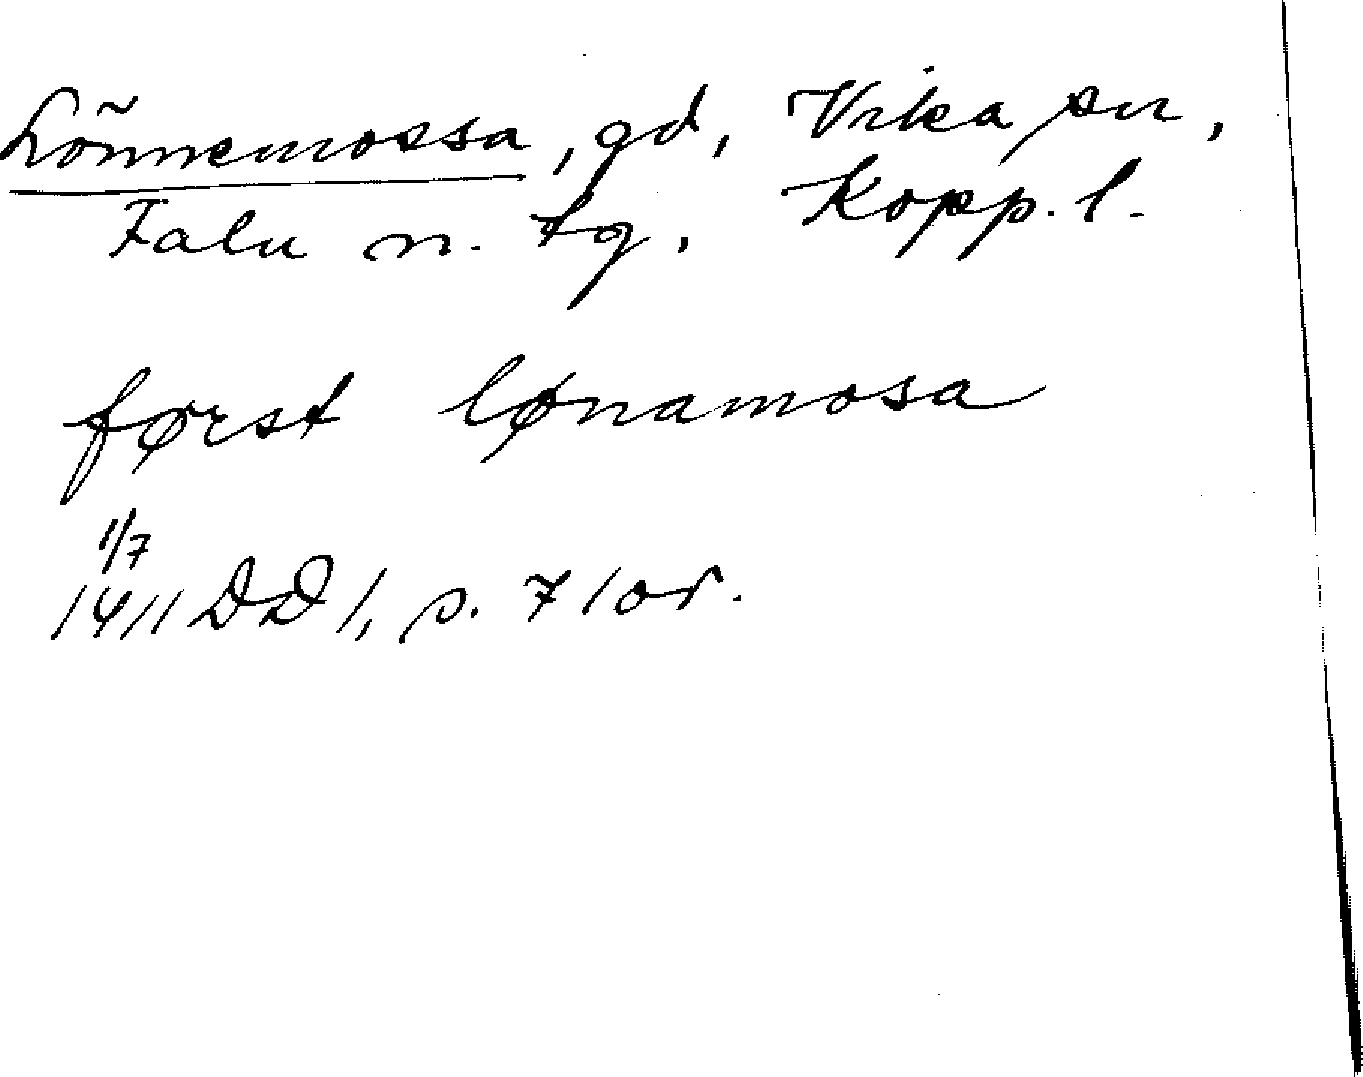 Lönnemossa, gd, Vika sn,
Falu n. tg. Kopp. l.
først lønamosa
1/7
1411 DD 1, s. 71 or.